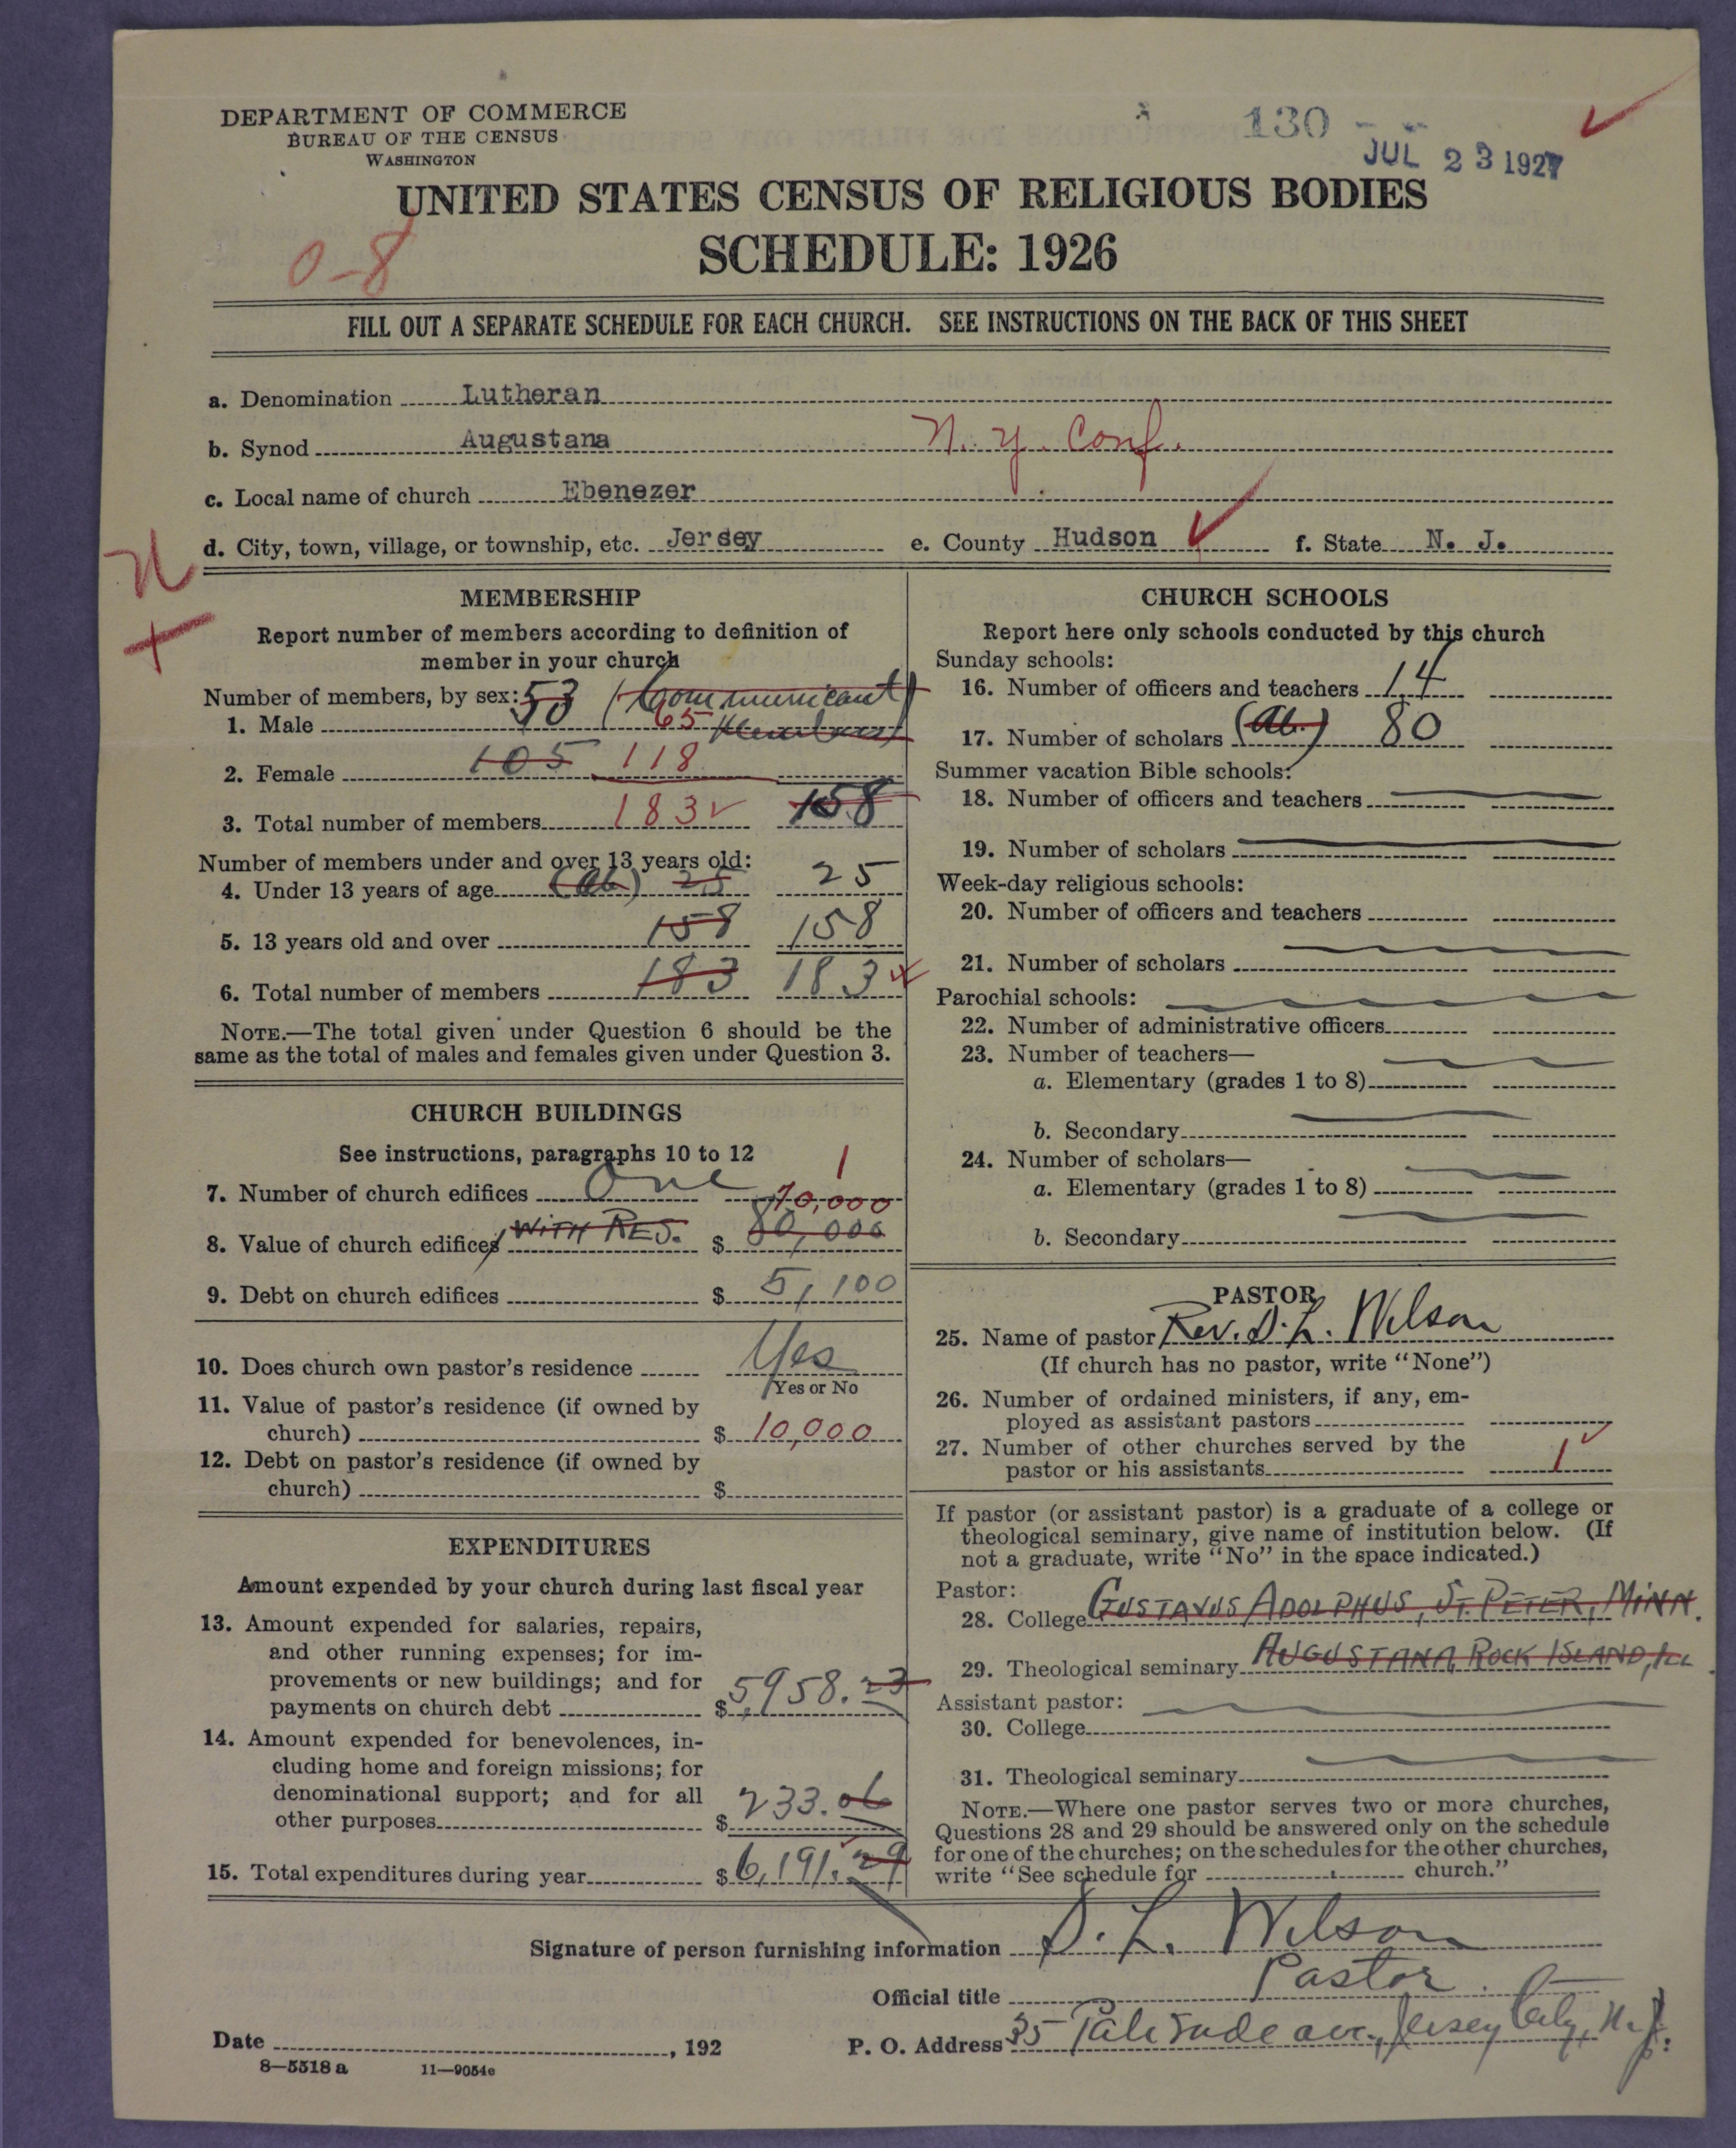 DEPARTMENT OF COMMERCE
BUREAU OF THE CENSUS
WASHINGTON
130
JUL 23 1927
UNITED STATES CENSUS OF RELIGIOUS BODIES
SCHEDULE: 1926
0-8
FILL OUT A SEPARATE SCHEDULE FOR EACH CHURCH. SEE INSTRUCTIONS ON THE BACK OF THIS SHEET
a. Denomination Lutheran
b. Synod Augustana N. Y. Conf.
c. Local name of church Ebenezer
d. City, town, village, or township, etc. Jersey e. County Hudson f. State N. J.
MEMBERSHIP
Report number of members according to definition of
member in your church
Number of members, by sex: 53 (Communicant
1. Male 65 Members)
2. Female 105 118
3. Total number of members 183 158
Number of members under and over 13 years old:
4. Under 13 years of age (ab) 25 25
5. 13 years old and over 158 158
6. Total number of members 183 183
NOTE.—The total given under Question 6 should be the
same as the total of males and females given under Question 3.
CHURCH BUILDINGS
See instructions, paragraphs 10 to 12
7. Number of church edifices One 1
70,000
8. Value of church edifices WITH RES. $ 80,000
9. Debt on church edifices $ 5,100
10. Does church own pastor's residence Yes
Yes or No
11. Value of pastor's residence (if owned by
church) $ 10,000
12. Debt on pastor's residence (if owned by
church) $
EXPENDITURES
Amount expended by your church during last fiscal year
13. Amount expended for salaries, repairs,
and other running expenses; for im-
provements or new buildings; and for
payments on church debt $ 5,958.23
14. Amount expended for benevolences, in-
cluding home and foreign missions; for
denominational support; and for all
other purposes $ 233.06
15. Total expenditures during year $ 6,191.29
CHURCH SCHOOLS
Report here only schools conducted by this church
Sunday schools:
16. Number of officers and teachers 14
17. Number of scholars (ab.) 80
Summer vacation Bible schools:
18. Number of officers and teachers
19. Number of scholars
Week-day religious schools:
20. Number of officers and teachers
21. Number of scholars
Parochial schools:
22. Number of administrative officers
23. Number of teachers—
a. Elementary (grades 1 to 8)
b. Secondary
24. Number of scholars—
a. Elementary (grades 1 to 8)
b. Secondary
PASTOR
25. Name of pastor Rev. D. L. Wilson
(If church has no pastor, write "None")
26. Number of ordained ministers, if any, em-
ployed as assistant pastors
27. Number of other churches served by the
pastor or his assistants 1
If pastor (or assistant pastor) is a graduate of a college or
theological seminary, give name of institution below. (If
not a graduate, write "No" in the space indicated.)
Pastor:
28. College GUSTAVUS ADOLPHUS, ST. PETER, MINN.
29. Theological seminary AUGUSTANA ROCK ISLAND, ILL
Assistant pastor:
30. College
31. Theological seminary
NOTE.—Where one pastor serves two or more churches,
Questions 28 and 29 should be answered only on the schedule
for one of the churches; on the schedules for the other churches,
write "See schedule for church."
Signature of person furnishing information D. L. Wilson
Official title Pastor
Date , 192 P. O. Address 35 Palisade ave., Jersey City, N. J.
8—5518 a 11—9054e